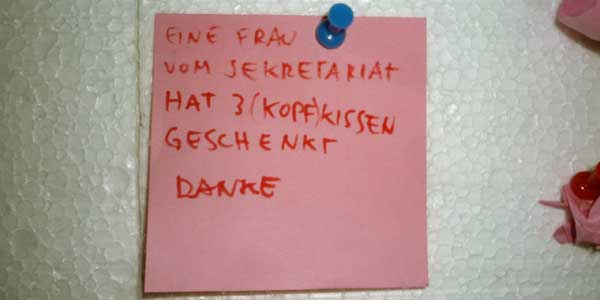 EINE FRAU
VOM SEKRETARIAT
HAT 3 (KOPF)KISSEN
GESCHENKT
DANKE